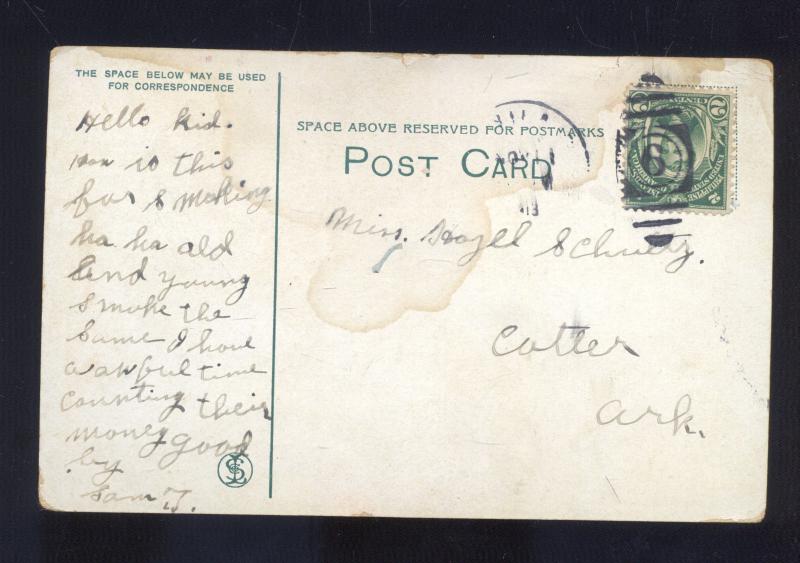 THE SPACE BELOW MAY BE USED
FOR CORRESPONDENCE
Hello Kid.
How is this
for smoking
ha ha old
and young
smoke the
same I have
a awful time
counting their
money good
by
Sam J.
SPACE ABOVE RESERVED FOR POSTMARKS
POST CARD
Miss. Hazell Schurtz.
Cotter
Ark.
2 CENTAVOS 2
PHILIPPINE ISLANDS
UNITED STATES OF AMERICA